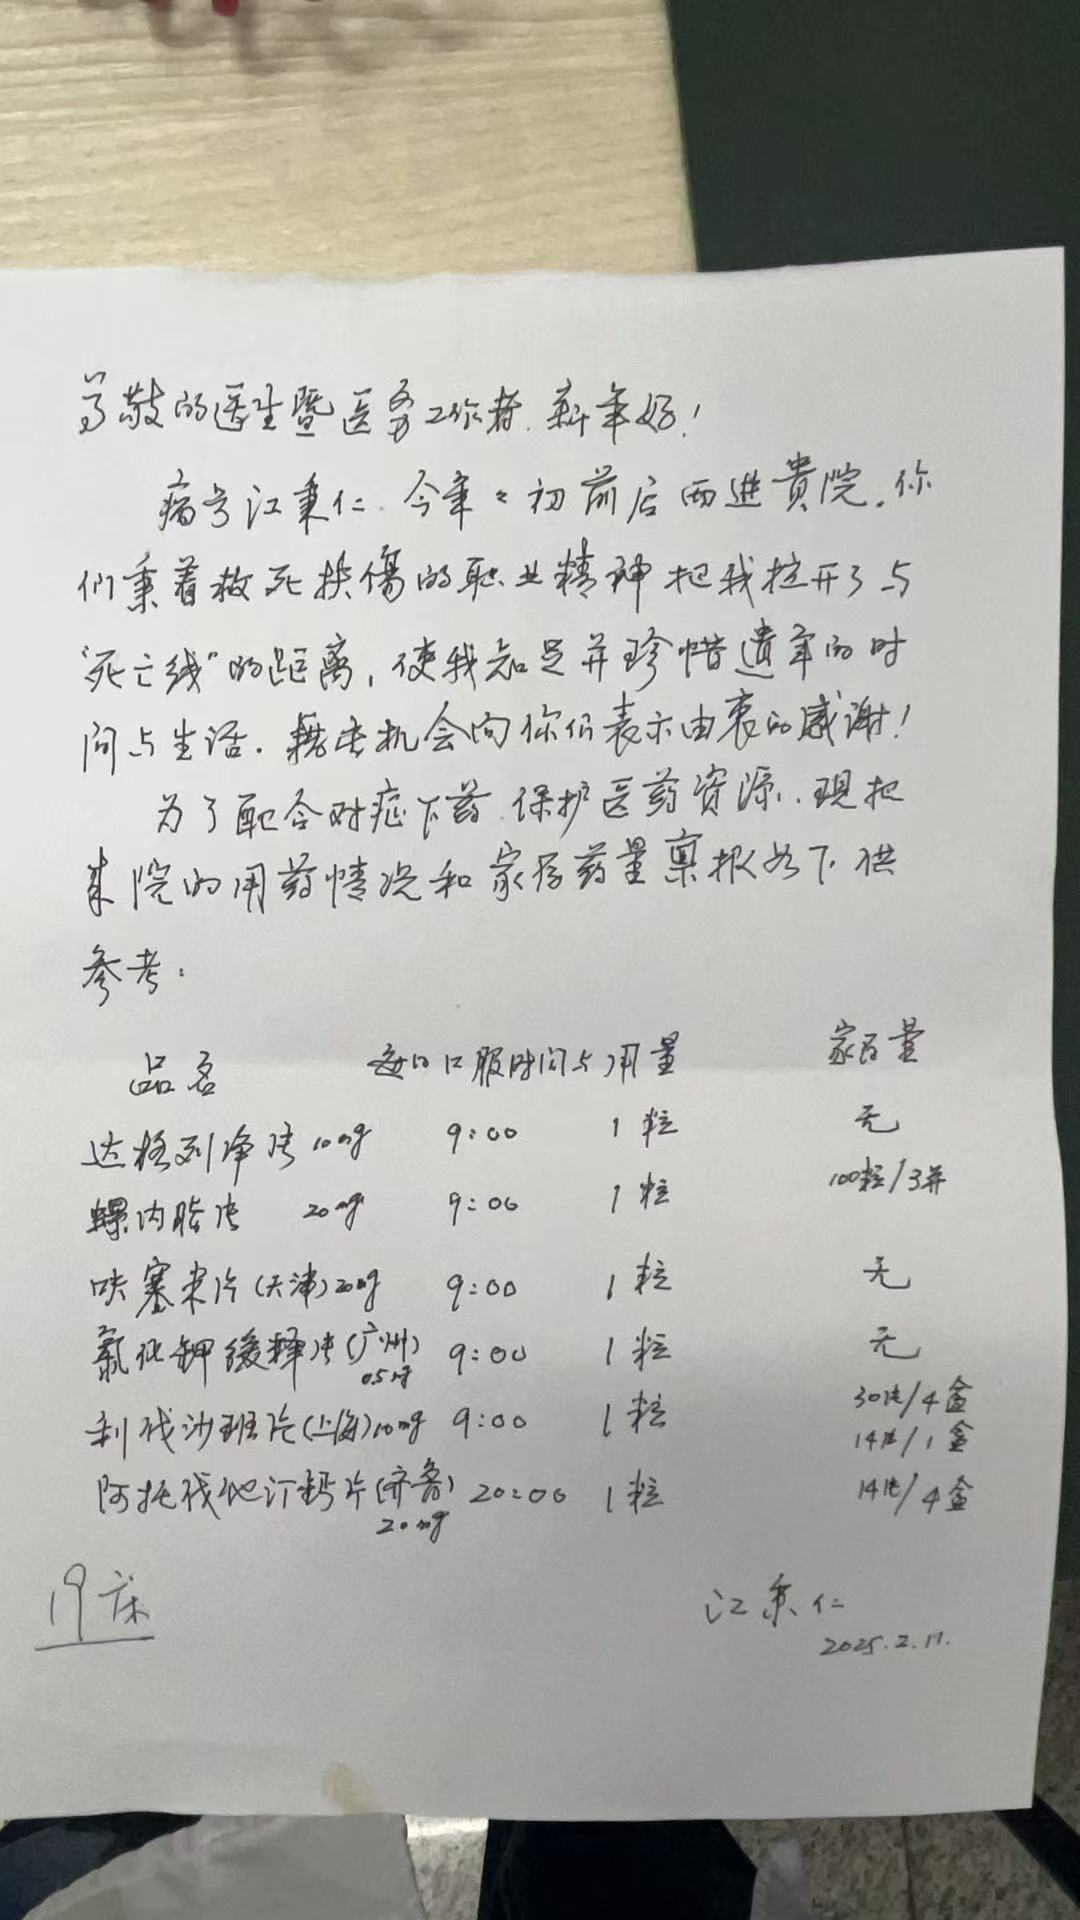 尊敬的医生暨医务工作者.新年好！
病号江秉仁.今年年初前后两进貴院.你
们秉着救死扶傷的职业精神把我拉开了与
“死亡线”的距离，使我知足并珍惜遗年的时
间与生活.藉此机会向你们表示由衷的感谢！
为了配合对症下药.保护医药资源.現把
来院的用药情况和家存药量禀报如下供
参考：
品名 每日口服时间与用量 家存量
达格列净片10mg 9:00 1粒 无
螺内酯片 20mg 9:00 1粒 100粒/3并
呋塞米片(天津)20mg 9:00 1粒 无
氯化钾缓释片(广州) 0.5 9:00 1粒 无
利伐沙班片(上海)10mg 9:00 1粒 30片/4盒
14片/1盒
阿托伐他汀钙片(齐鲁) 20mg 20:00 1粒 14片/4盒
19床
江秉仁
2025.2.17.